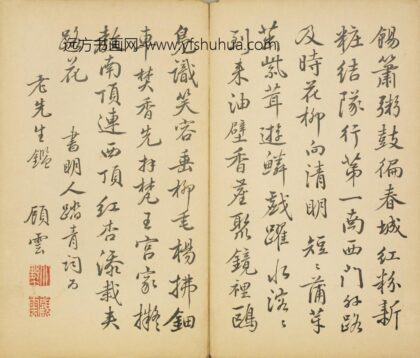 远方书画网-www.yfshuhua.com
錫簫粥鼓徧春城紅粉新
粧結隊行第一南西門外路
及時花柳向清明 短〻蒲芽
茁紫茸遊鱗戲躍水溶〻
到來油壁香塵聚鏡裡鷗
鳧識笑容垂柳毛楊拂鈿
車焚香先拜梵王宮家擬
南頂連西頂紅杏添栽夾
路花 書明人踏青詞為
老先生鑑 顧雲